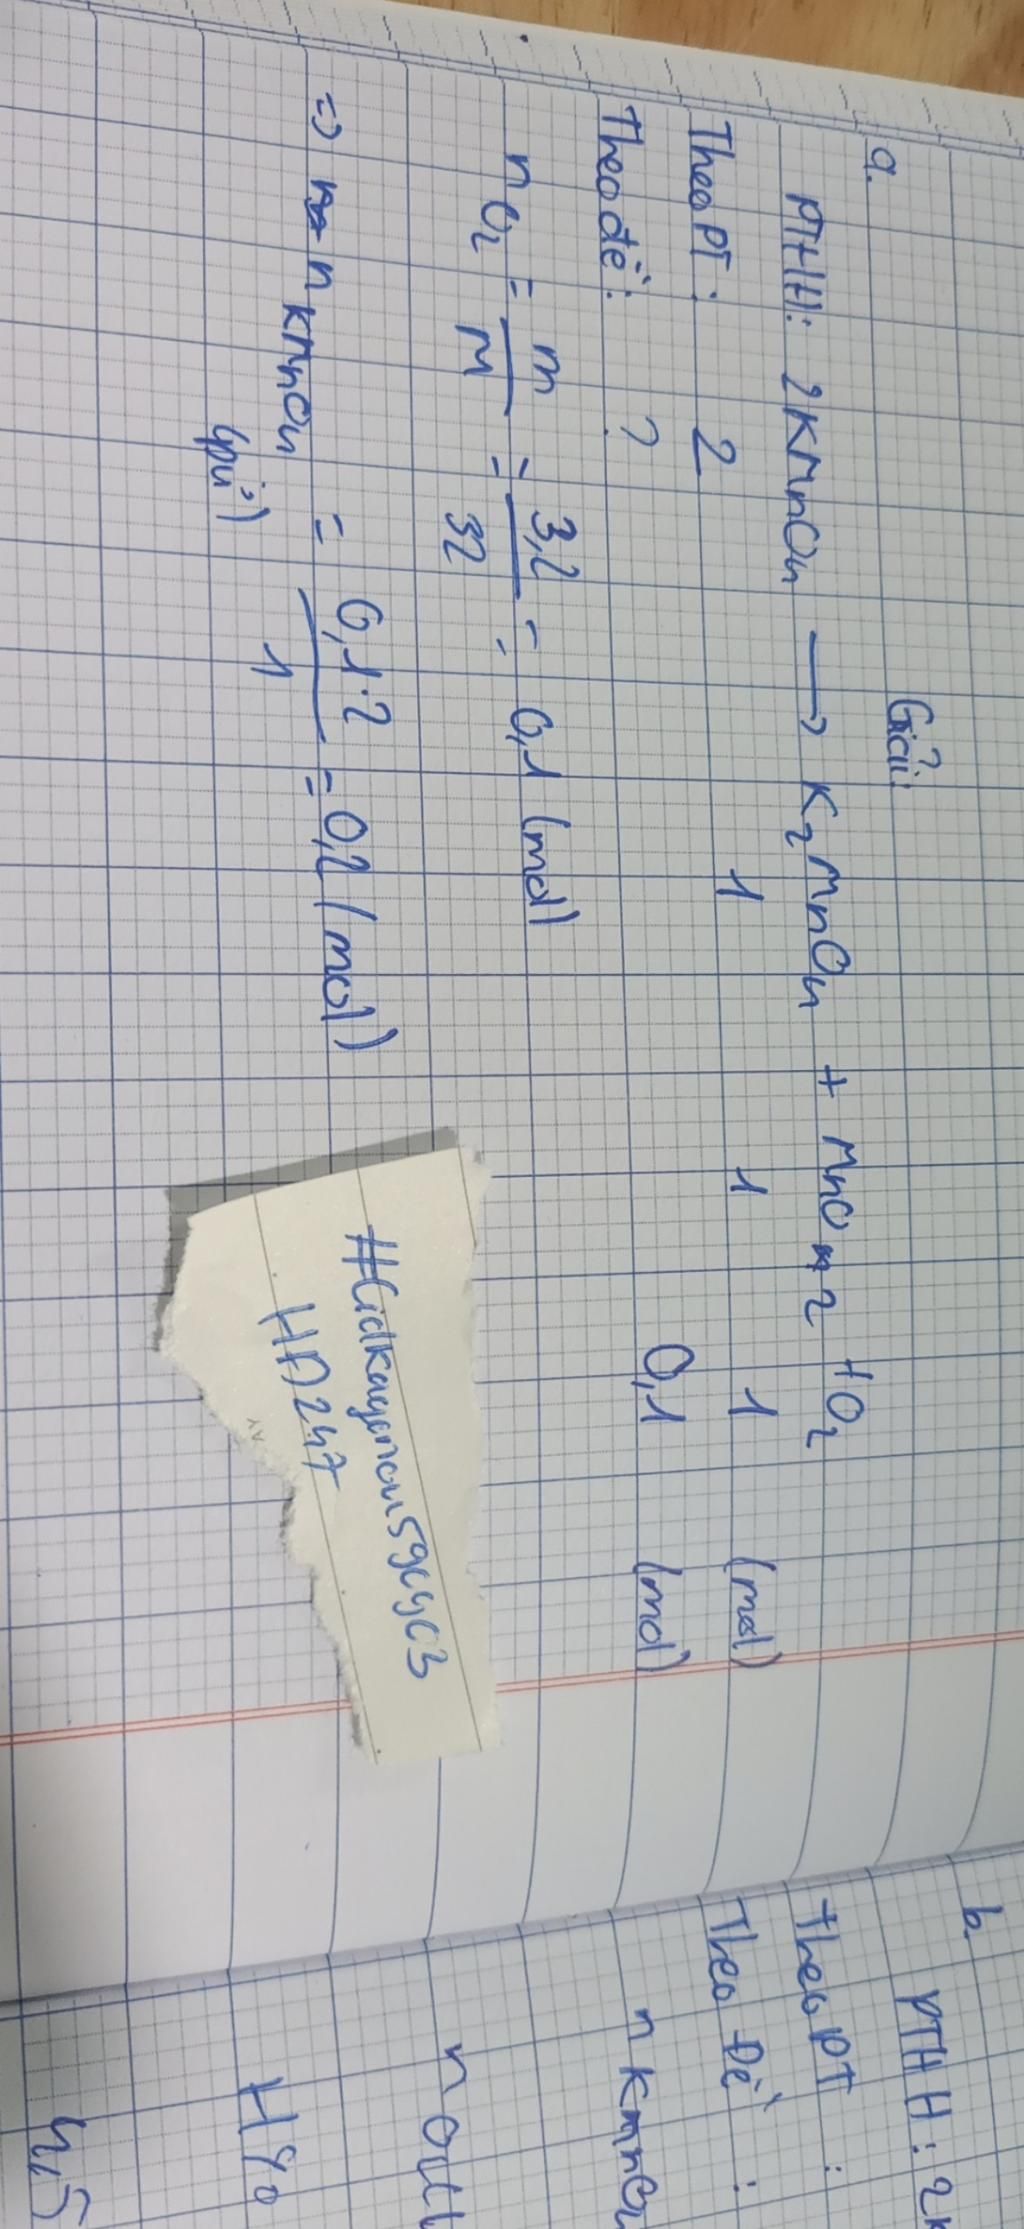 Giải:
a.
PTHH: 2KMnO4 → K2MnO4 + MnO2 + O2
Theo PT: 2 1 1 1 (mol)
Theo đề: ? 0,1 (mol)
nO2 = m/M = 3,2/32 = 0,1 (mol)
=> n KMnO4 = 0,1.2/1 = 0,2 (mol)
(pứ)
HA247
b.
PTHH: 2K
Theo PT :
Theo Đề :
n KMnO4
n
H%